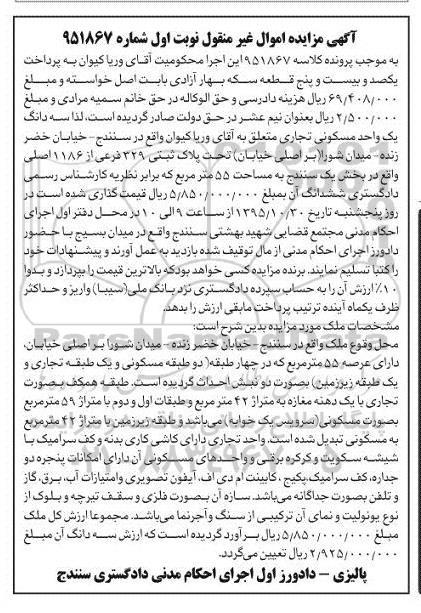 آگهی مزایده اموال غیر منقول نوبت اول شماره ۹۵۱۸۶۷
به موجب پرونده کلاسه ۹۵۱۸۶۷ این اجرا محکومیت آقای وریا کیوان به پرداخت
یکصد و بیست و پنج قطعه سکه بهار آزادی بابت اصل خواسته و مبلغ
۶۹/۴۰۸/۰۰۰ ریال هزینه دادرسی و حق الوکاله در حق خانم سمیه مرادی و مبلغ
۲/۵۰۰/۰۰۰ ریال بعنوان نیم عشر در حق دولت صادر گردیده است، لذا سه دانگ
یک واحد مسکونی تجاری متعلق به آقای وریا کیوان واقع در سنندج - خیابان خضر
زنده - میدان شورا(بر اصلی خیابان) تحت پلاک ثبتی ۳۲۹ فرعی از ۱۱۸۶ اصلی
واقع در بخش یک سنندج به مساحت ۵۵ متر مربع که برابر نظریه کارشناس رسمی
دادگستری ششدانگ آن بمبلغ ۵/۸۵۰/۰۰۰/۰۰۰ ریال قیمت گذاری شده است در
روز پنجشنبه تاریخ ۱۳۹۵/۱۰/۳۰ از ساعت ۹ الی ۱۰ در محل دفتر اول اجرای
احکام مدنی مجتمع قضایی شهید بهشتی سنندج واقع در میدان بسیج با حضور
دادورز اجرای احکام مدنی از مال توقیف شده بازدید به عمل آورند و پیشنهادات خود
را کتبا تسلیم نمایند. برنده مزایده کسی خواهد بود که بالاترین قیمت را بپردازد و بدوا
۱۰٪ ارزش آن را به حساب سپرده دادگستری نزد بانک ملی(سیبا) واریز و حداکثر
ظرف یکماه آینده ترتیب پرداخت مابقی ارزش را بدهد.
مشخصات ملک مورد مزایده بدین شرح است:
محل وقوع ملک واقع در سنندج - خیابان خضر زنده - میدان شورا بر اصلی خیابان،
دارای عرصه ۵۵ مترمربع که در چهار طبقه( دو طبقه مسکونی و یک طبقه تجاری و
یک طبقه زیرزمین) بصورت دو نبش احداث گردیده است. طبقه همکف بصورت
تجاری با یک دهنه مغازه به متراژ ۴۲ متر مربع و طبقات اول و دوم با متراژ ۵۹ مترمربع
بصورت مسکونی(سرویس یک خوابه) می‌باشد و طبقه زیرزمین با متراژ ۴۲ مترمربع
به مسکونی تبدیل شده است. واحد تجاری دارای کاشی کاری بدنه و کف سرامیک با
شیشه سکوریت و کرکره برقی و واحدهای مسکونی آن دارای امکانات پنجره دو
جداره، کف سرامیک، پکیج، کابینت ام دی اف، آیفون تصویری و امتیازات آب، برق، گاز
و تلفن بصورت جداگانه می‌باشد. سازه آن بصورت فلزی و سقف تیرچه و بلوک از
نوع یونولیت و نمای آن ترکیبی از سنگ و آجرنما می‌باشد. مجموعا ارزش کل ملک
مبلغ ۵/۸۵۰/۰۰۰/۰۰۰ ریال برآورد گردیده است که ارزش سه دانگ آن مبلغ
۲/۹۲۵/۰۰۰/۰۰۰ ریال تعیین می‌گردد.
پالیزی - دادورز اول اجرای احکام مدنی دادگستری سنندج